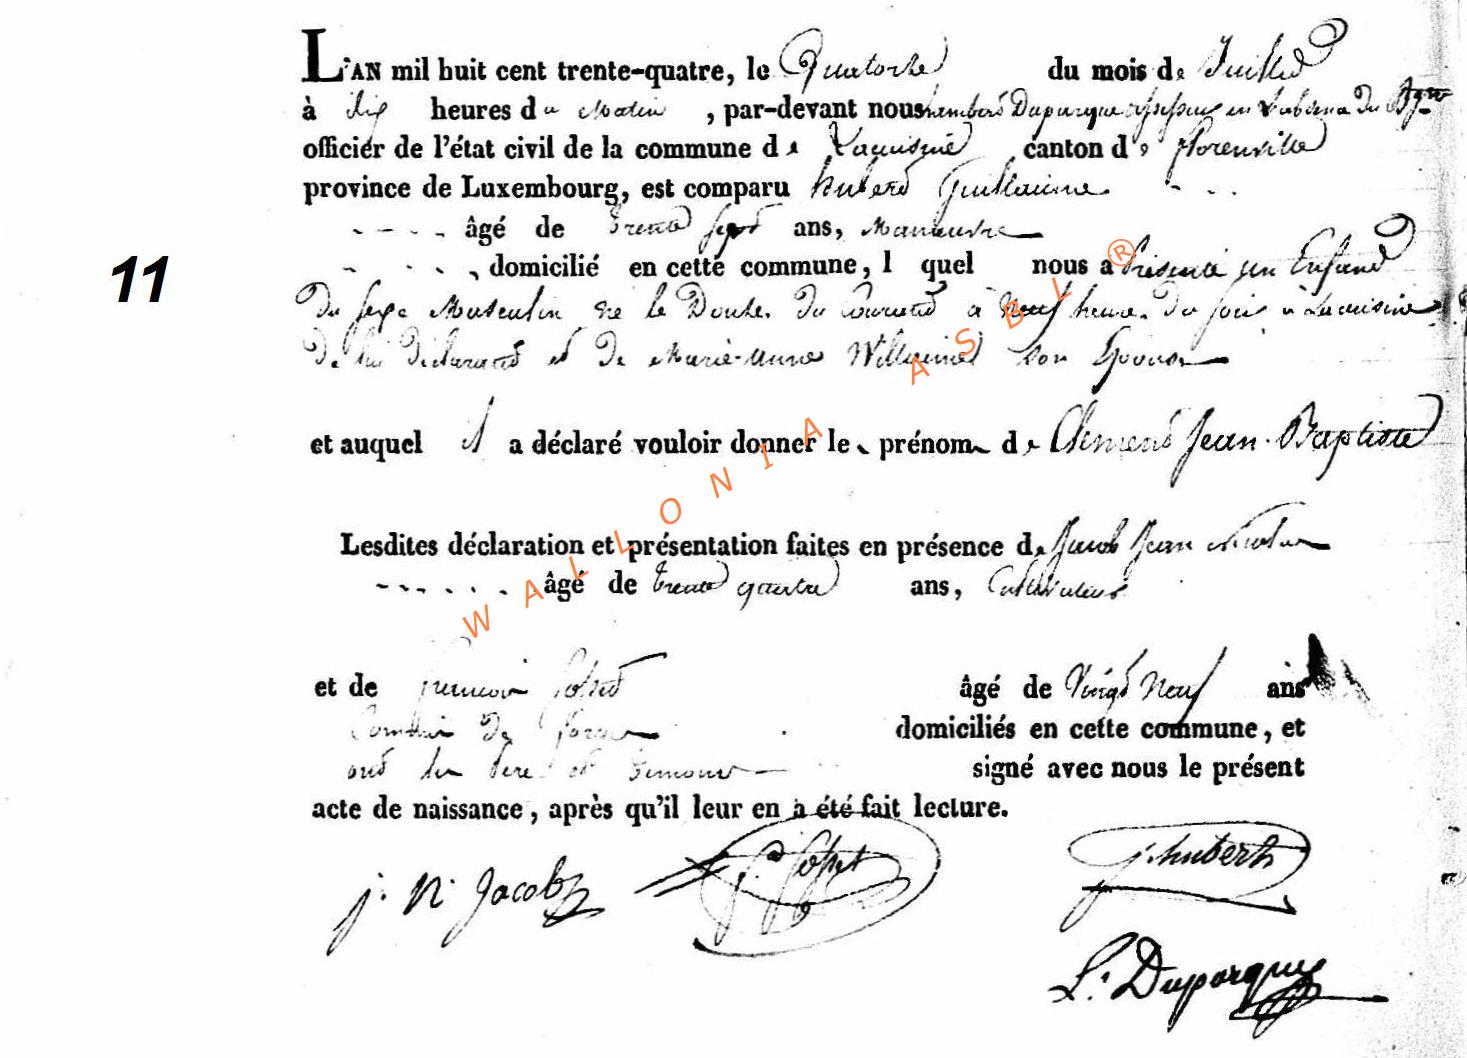 L'AN mil huit cent trente-quatre, le Quatorze du mois de Juillet
à dix heures du Matin, par-devant nous Lambert Duparque assesseur en L'absence du Bgre
officier de l'état civil de la commune de Lacuisine canton de florenville
province de Luxembourg, est comparu hubert Guillaume
âgé de trente sept ans, Manœuvre
11
domicilié en cette commune, lequel nous a Présenté un Enfant
Du sexe Masculin né le Douze Du Courant à Neuf heure Du soir à Lacuisine
De lui déclarant et De Marie-Anne Willaime son Epouse
et auquel il a déclaré vouloir donner le prénom de Clement Jean-Baptiste
Lesdites déclaration et présentation faites en présence de Jacob Jean Nicolas
âgé de trente quatre ans, Cultivateur
et de âgé de Vingt Neuf ans
Commis De forge domiciliés en cette commune, et
ont les Pere et Temoins signé avec nous le présent
acte de naissance, après qu'il leur en a été fait lecture.
j. N. Jacob
hubert
L. Duparque
WALLONIA ASBL ®